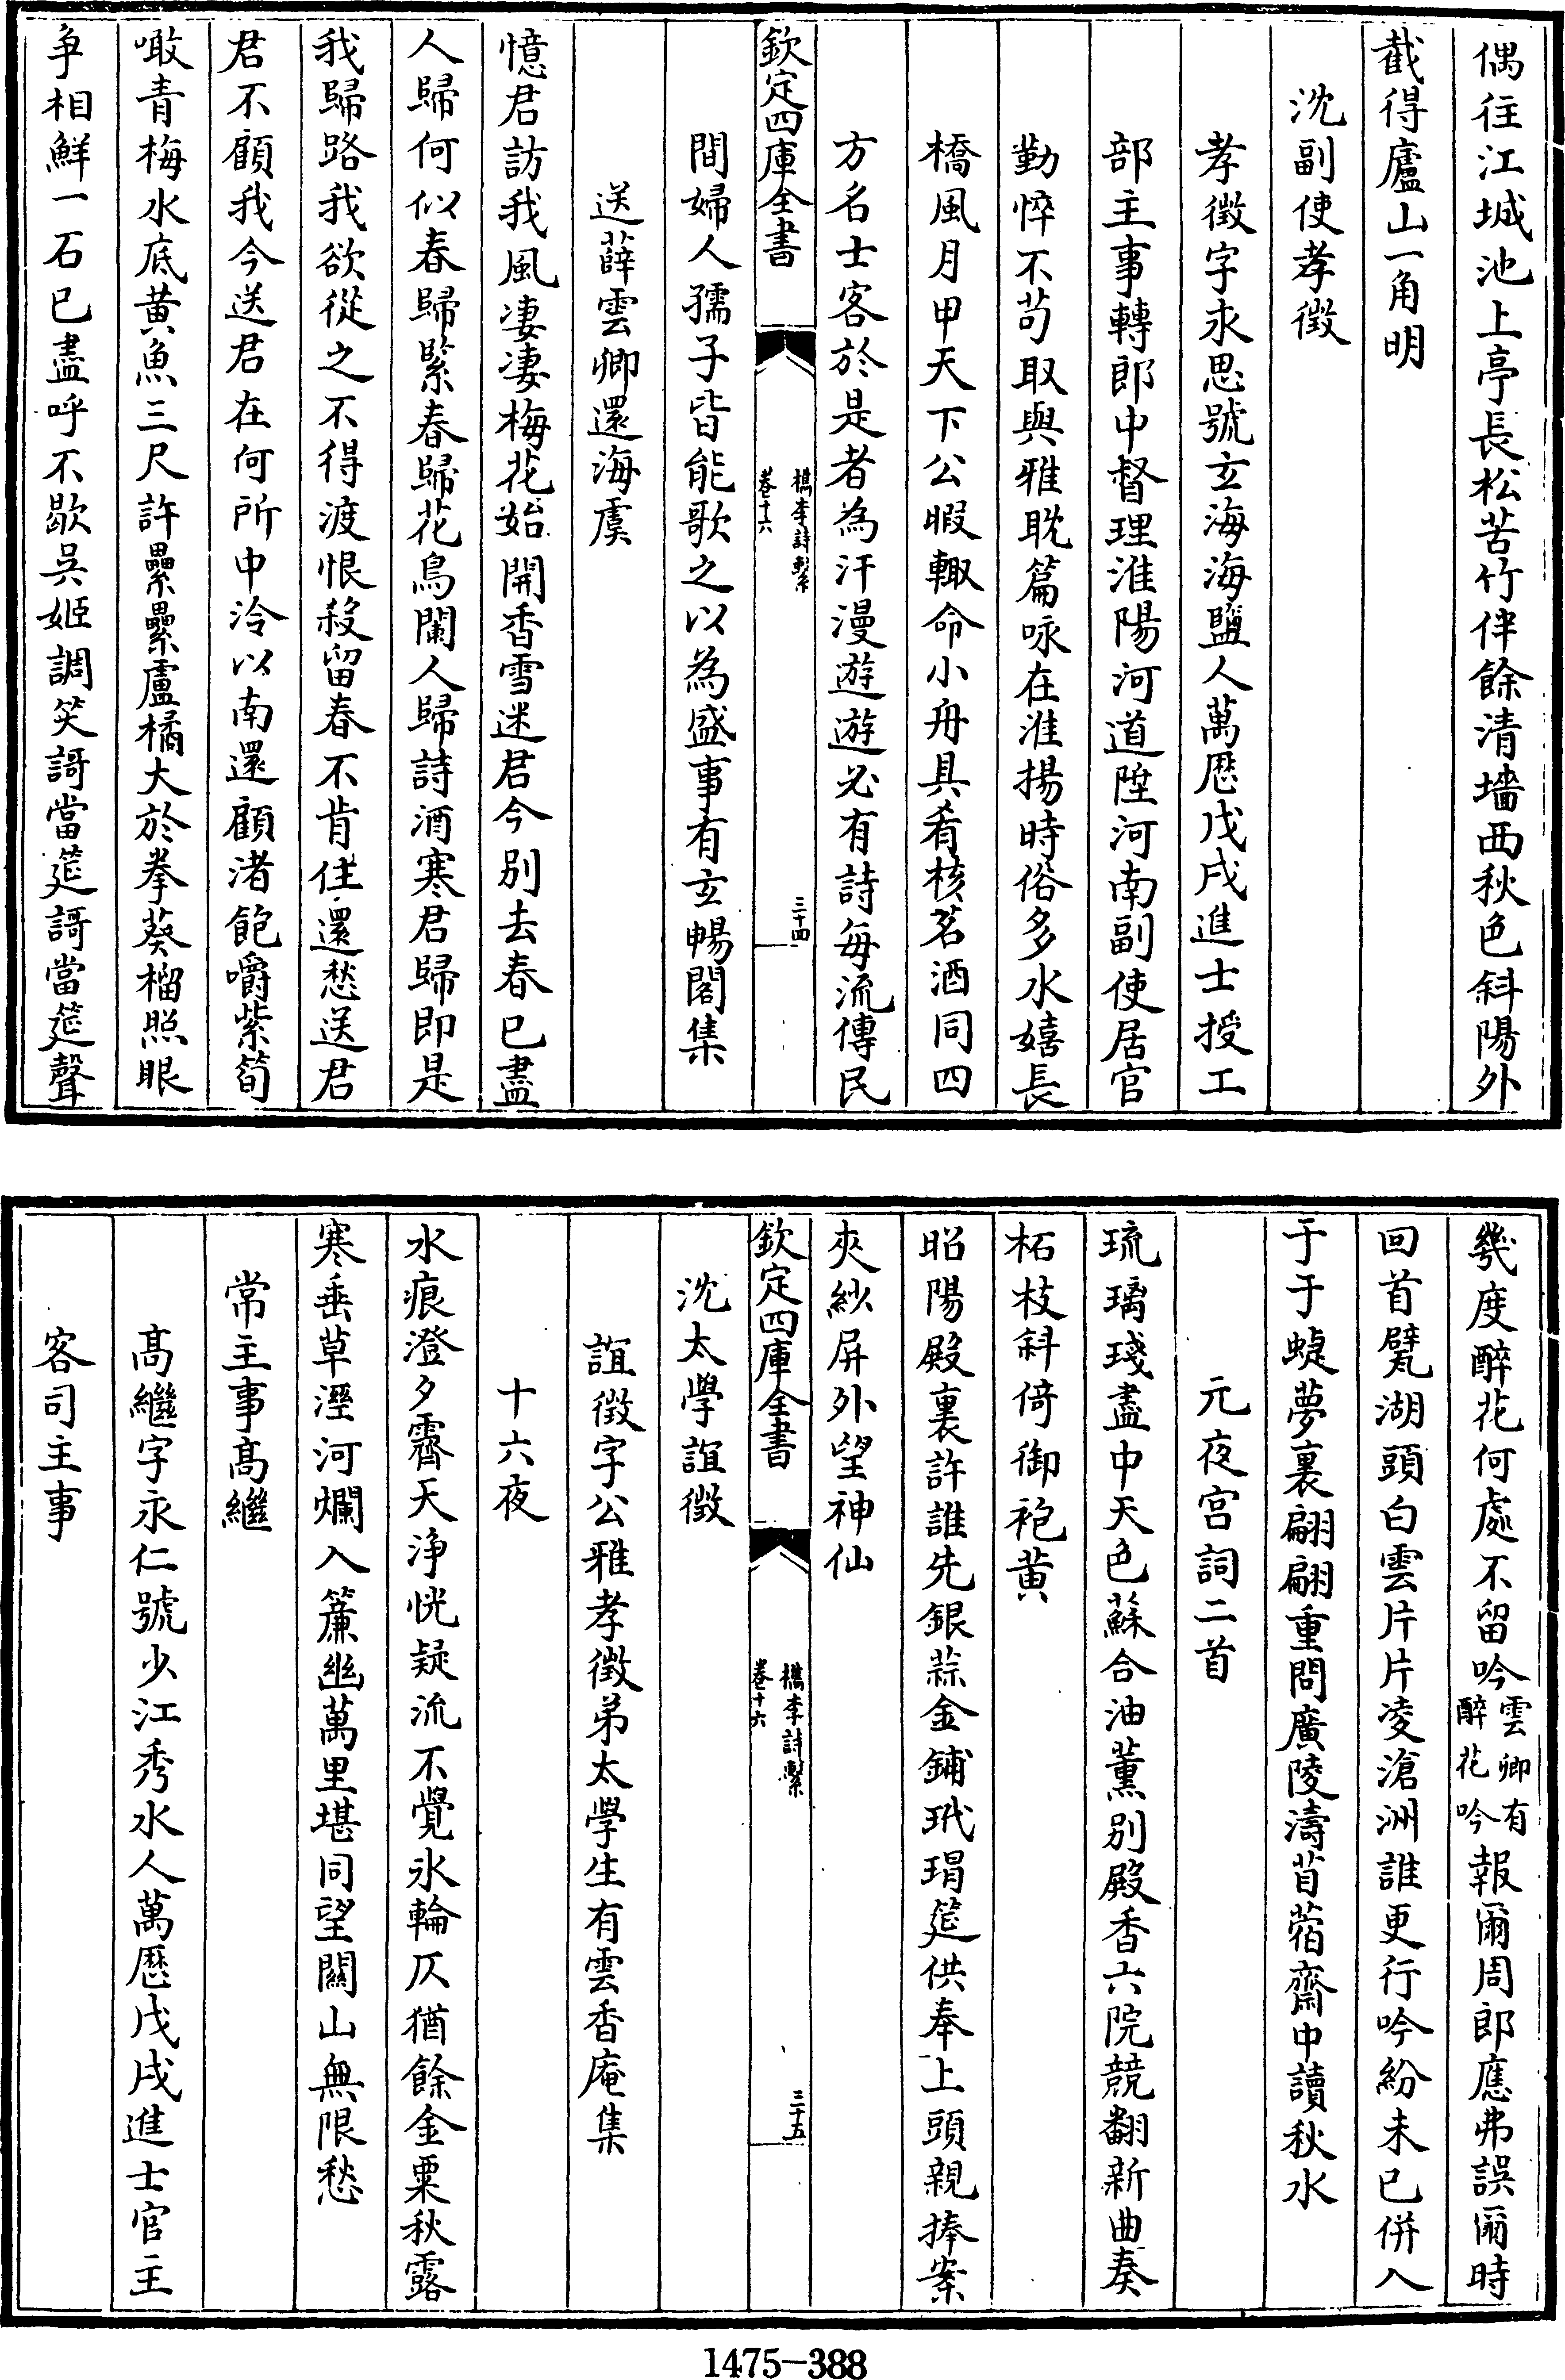 偶往江城池上亭長松苦竹伴餘清墻西秋色斜陽外
截得廬山一角明
沈副使孝徴
孝徴字永思號玄海海鹽人萬厯戊戌進士授工
部主事轉郎中督理淮陽河道陞河南副使居官
勤悴不茍取與雅耽篇咏在淮揚時俗多水嬉長
橋風月甲天下公暇輙命小舟具肴核茗酒同四
方名士客於是者為汗漫遊遊必有詩每流傳民
欽定四庫全書
檇李詩繫
卷十六
三十四
間婦人孺子皆能歌之以為盛事有玄暢閣集
送薛雲卿還海虞
憶君訪我風凄凄梅花始開香雪迷君今别去春已盡
人歸何似春歸緊春歸花鳥闌人歸詩酒寒君歸即是
我歸路我欲從之不得渡恨殺留春不肯住還愁送君
君不顧我今送君在何所中泠以南還顧渚飽嚼紫筍
噉青梅水底黄魚三尺許纍纍盧橘大於拳葵榴照眼
争相鮮一石已盡呼不歇呉姬調笑謌當筵謌當筵聲
幾度醉花何處不留吟雲卿有醉花吟報爾周郎應弗誤爾時
回首甓湖頭白雲片片凌滄洲誰更行吟紛未已併入
于于蜨夢裏翩翩重問廣陵濤苜蓿齋中讀秋水
元夜宫詞二首
琉璃琖盡中天色蘇合油薰别殿香六院競翻新曲奏
柘枝斜倚御袍黄
昭陽殿裏許誰先銀蒜金鋪玳瑁筵供奉上頭親捧案
夾紗屏外望神仙
欽定四庫全書
檇李詩繫
卷十六
三十五
沈太學誼徴
誼徴字公雅孝徴弟太學生有雲香庵集
十六夜
水痕澄夕霽天浄恍疑流不覺氷輪仄猶餘金粟秋露
寒垂草溼河爛入簾幽萬里堪同望關山無限愁
常主事髙繼
髙繼字永仁號少江秀水人萬厯戊戌進士官主
客司主事
1475-388